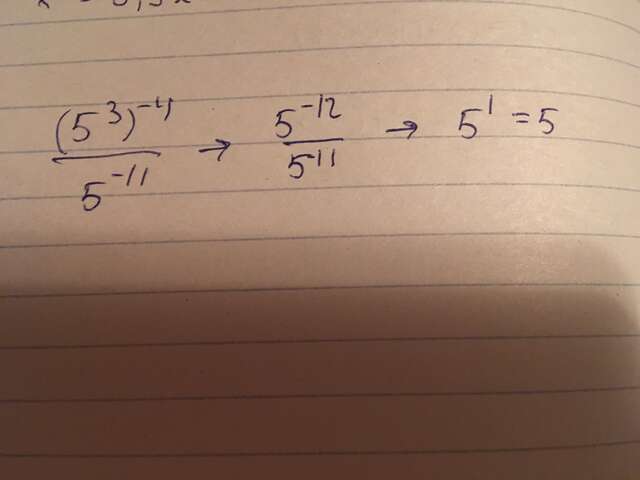 (5^3)^-4 / 5^-11 → 5^-12 / 5^11 → 5^1 = 5